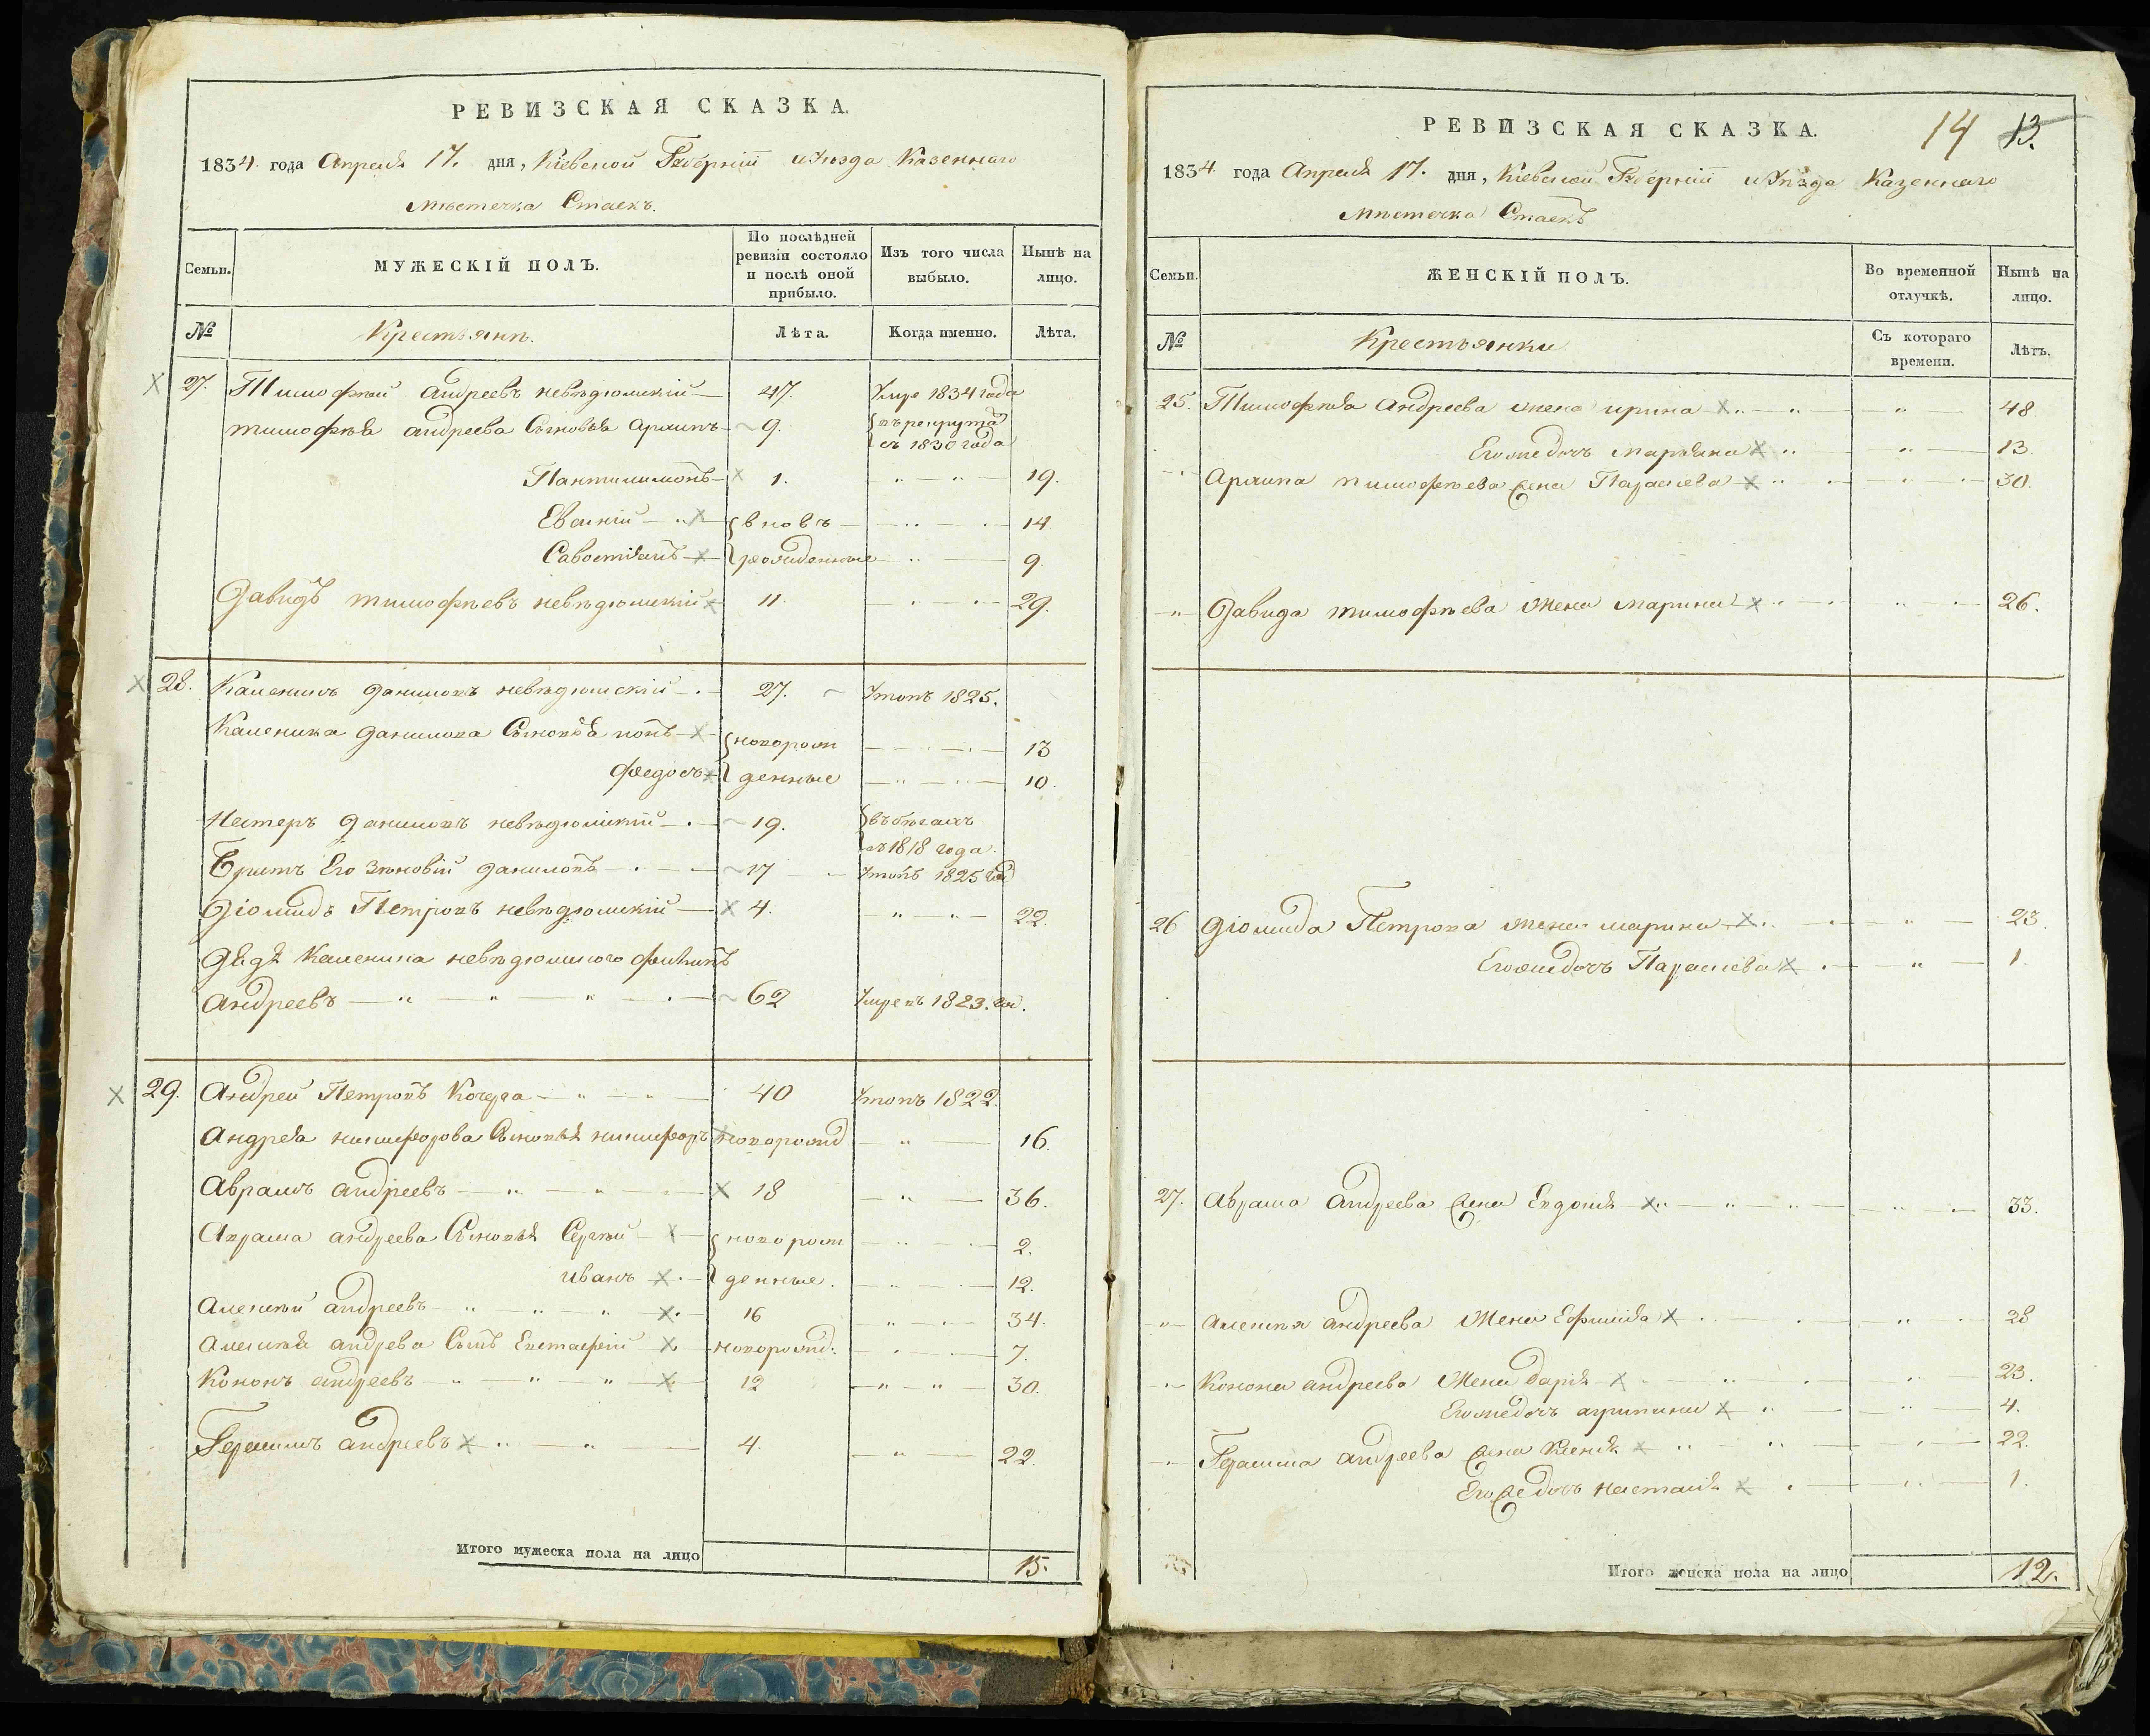 РЕВИЗСКАЯ СКАЗКА.
1834. года Апреля 17. дня, Кіевской Губерніи и Уѣзда Казеннаго
Мѣстечка Стаекъ.
Семьи.
МУЖЕСКІЙ ПОЛЪ.
По послѣдней ревизіи состояло и послѣ оной прибыло.
Изъ того числа выбыло.
Нынѣ на лицо.
№
Крестьяне.
Лѣта.
Когда именно.
Лѣта.
27. Тимофей Андреевъ невѣдомскій 47. Умре 1834 года
тимофѣя андреева Сыновья 9. въ рекрутахъ
съ 1830 года
Пантилимонъ 1. 19.
вновь 14.
Савостіянъ рожденные 9.
Давидъ тимофѣевъ невѣдомскій 11. 29.
28. Каленикъ даниловъ невѣдомскій 27. 1825.
Каленика данилова Сыновья новорож 13
федосъ денные 10.
Нестеръ даниловъ невѣдомскій 19. въ бѣгахъ
съ 1818 года.
Братъ Его Зѣновій даниловъ 17 1825 год
Діомидъ Петровъ невѣдомскій 4. 22.
Дядя Каленика невѣдомского филипъ
андреевъ 62 Умре въ 1823. год.
29. Андрей Петровъ Кочерга 40 1822.
Андрея никифорова Сыновья никифоръ новорожд 16.
Аврамъ андреевъ 18 36.
Аврама андреева Сыновья Сергѣй новорож 2.
иванъ денные. 12.
Алексѣй андреевъ 16 34.
Алексѣя андрева Сынъ Евстафій новорожд: 7.
Кононъ андреевъ 12 30.
Герасимъ андреевъ 4. 22.
Итого мужеска пола на лицо 15.
РЕВИЗСКАЯ СКАЗКА. 14 13.
1834 года Апреля 17. дня, Кіевской Губерніи и Уѣзда Казеннаго
Мѣстечка Стаекъ
Семьи.
ЖЕНСКІЙ ПОЛЪ.
Во временной отлучкѣ.
Нынѣ на лицо.
№
Крестьянки
Съ котораго времени.
Лѣтъ.
25. Тимофѣя Андреева жена ирина 48
Его же дочь Марьяна 13.
тимофѣева жена Параскева 30.
Давида тимофѣева Жена Марина 26.
26 Діомида Петрова жена марина 23.
Его же дочь Параскева 1.
27. Аврама Андреева жена Евдокія 33.
Алексѣя андреева Жена Ефимія 28
Конона андреева Жена дарія 23.
Его же дочь агрипина 4.
Герасима андреева жена Ксенія 22.
Его же дочь настасія 1.
Итого женска пола на лицо 12.